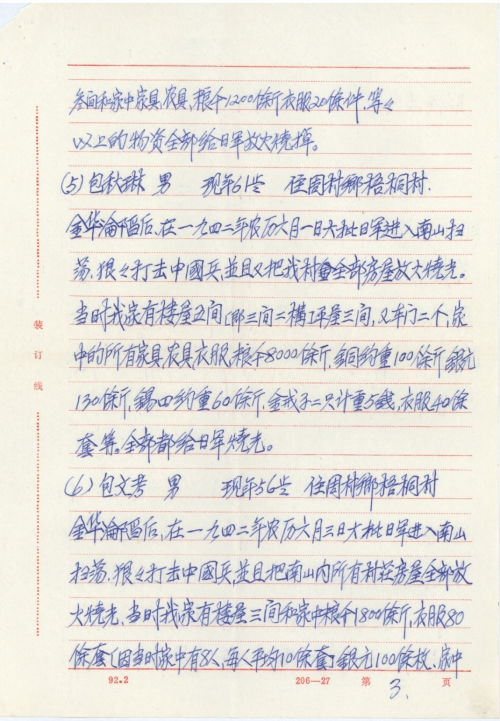 叁间和家中家具,农具,粮仐1200馀斤衣服20馀件,等々
以上的物资全部给日军放火燒掉。
(5)包秋琳 男 现年61岁 住周村鄉梧桐村.
金华淪陷后,在一九四二年农历六月一日大批日军进入南山扫
荡.狠々打击中國兵,並且又把我村全部房屋放火燒光。
当时我家有楼屋五间[即三间二横]平屋三间,又车门二个,家
中的所有家具农具衣服,粮仐8000馀斤,銅约重100馀斤銀元
130馀斤,錫四约重60馀斤,金戒子二只计重5錢,衣服40馀
套等。全部都给日军燒光。
(6)包文考 男 现年56岁 住周村鄉梧桐村
金华淪陷后,在一九四二年农历六月三日大批日军进入南山
扫荡.狠々打击中國兵,並且把南山内所有村莊房屋全部放
火燒光,当时我家有楼屋三间和家中粮仐1800馀斤,衣服80
馀套[因当时家中有8人,每人平均10馀套]銀元100馀枚.家中
装订线
92.2 206—27 第 3. 页